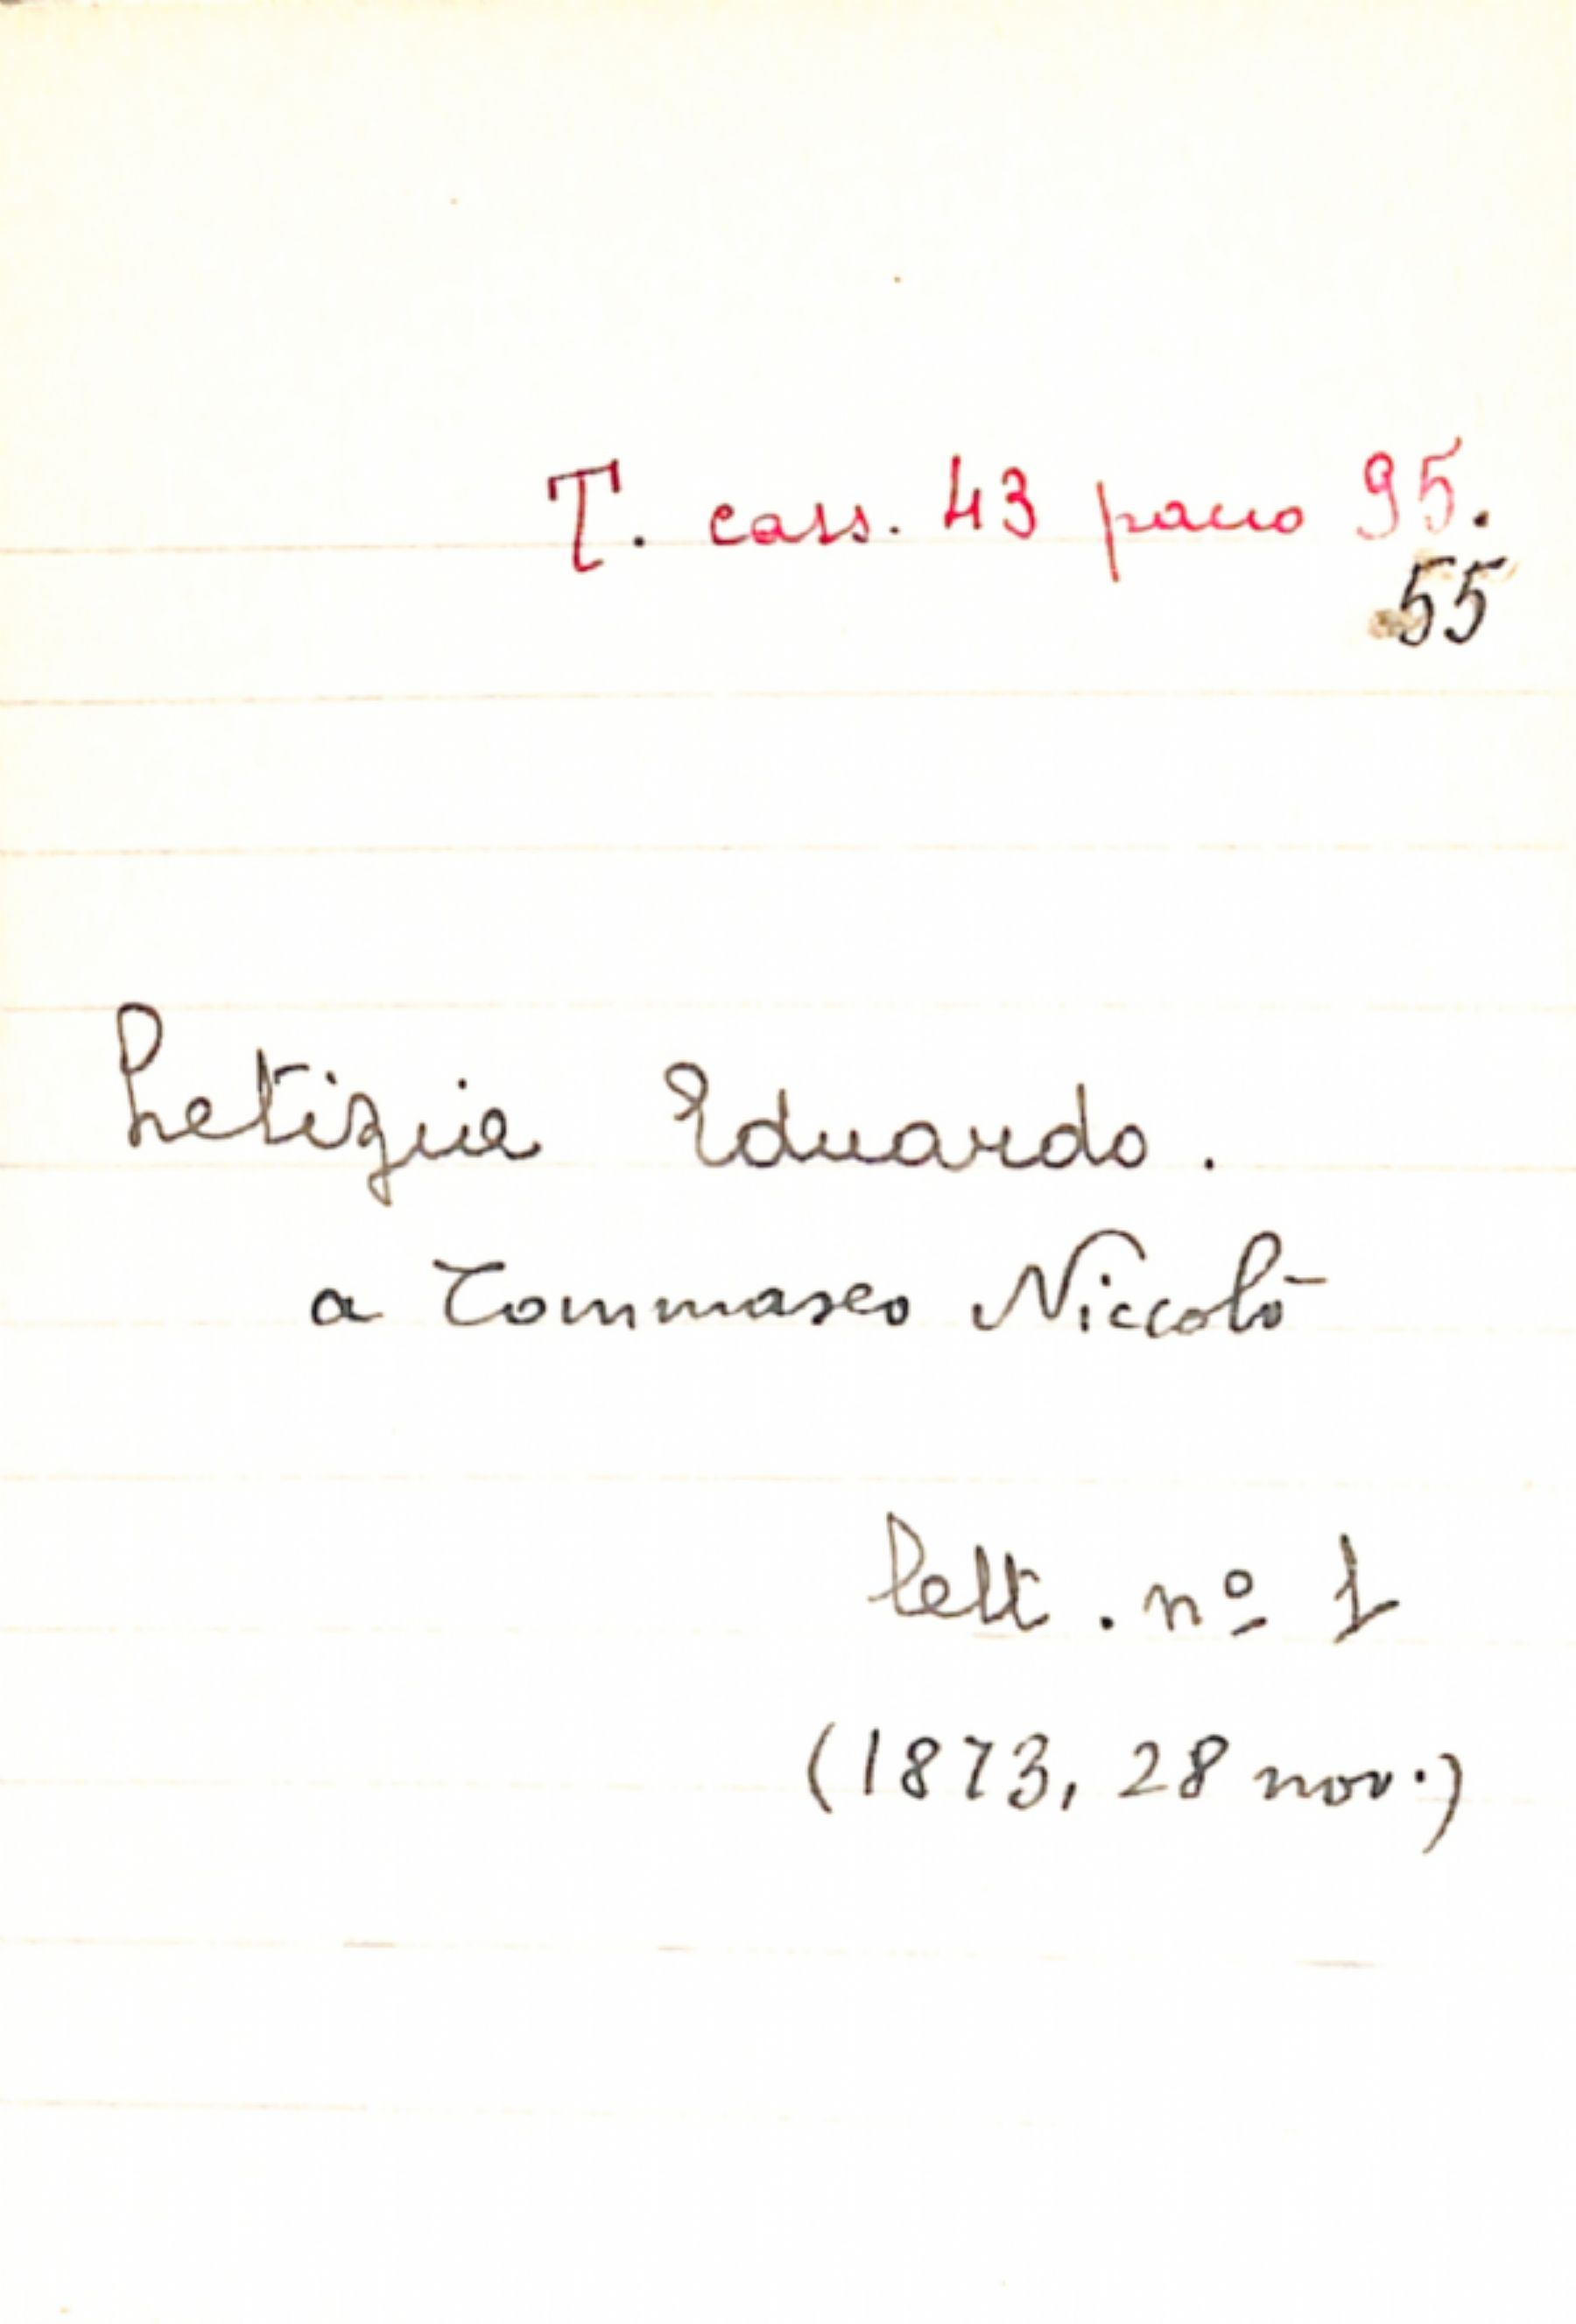 T. cass. 43 pacco 95.
55
Letizia Eduardo.
a Tommaseo Niccolò
lett. nº 1
(1873, 28 nov.)